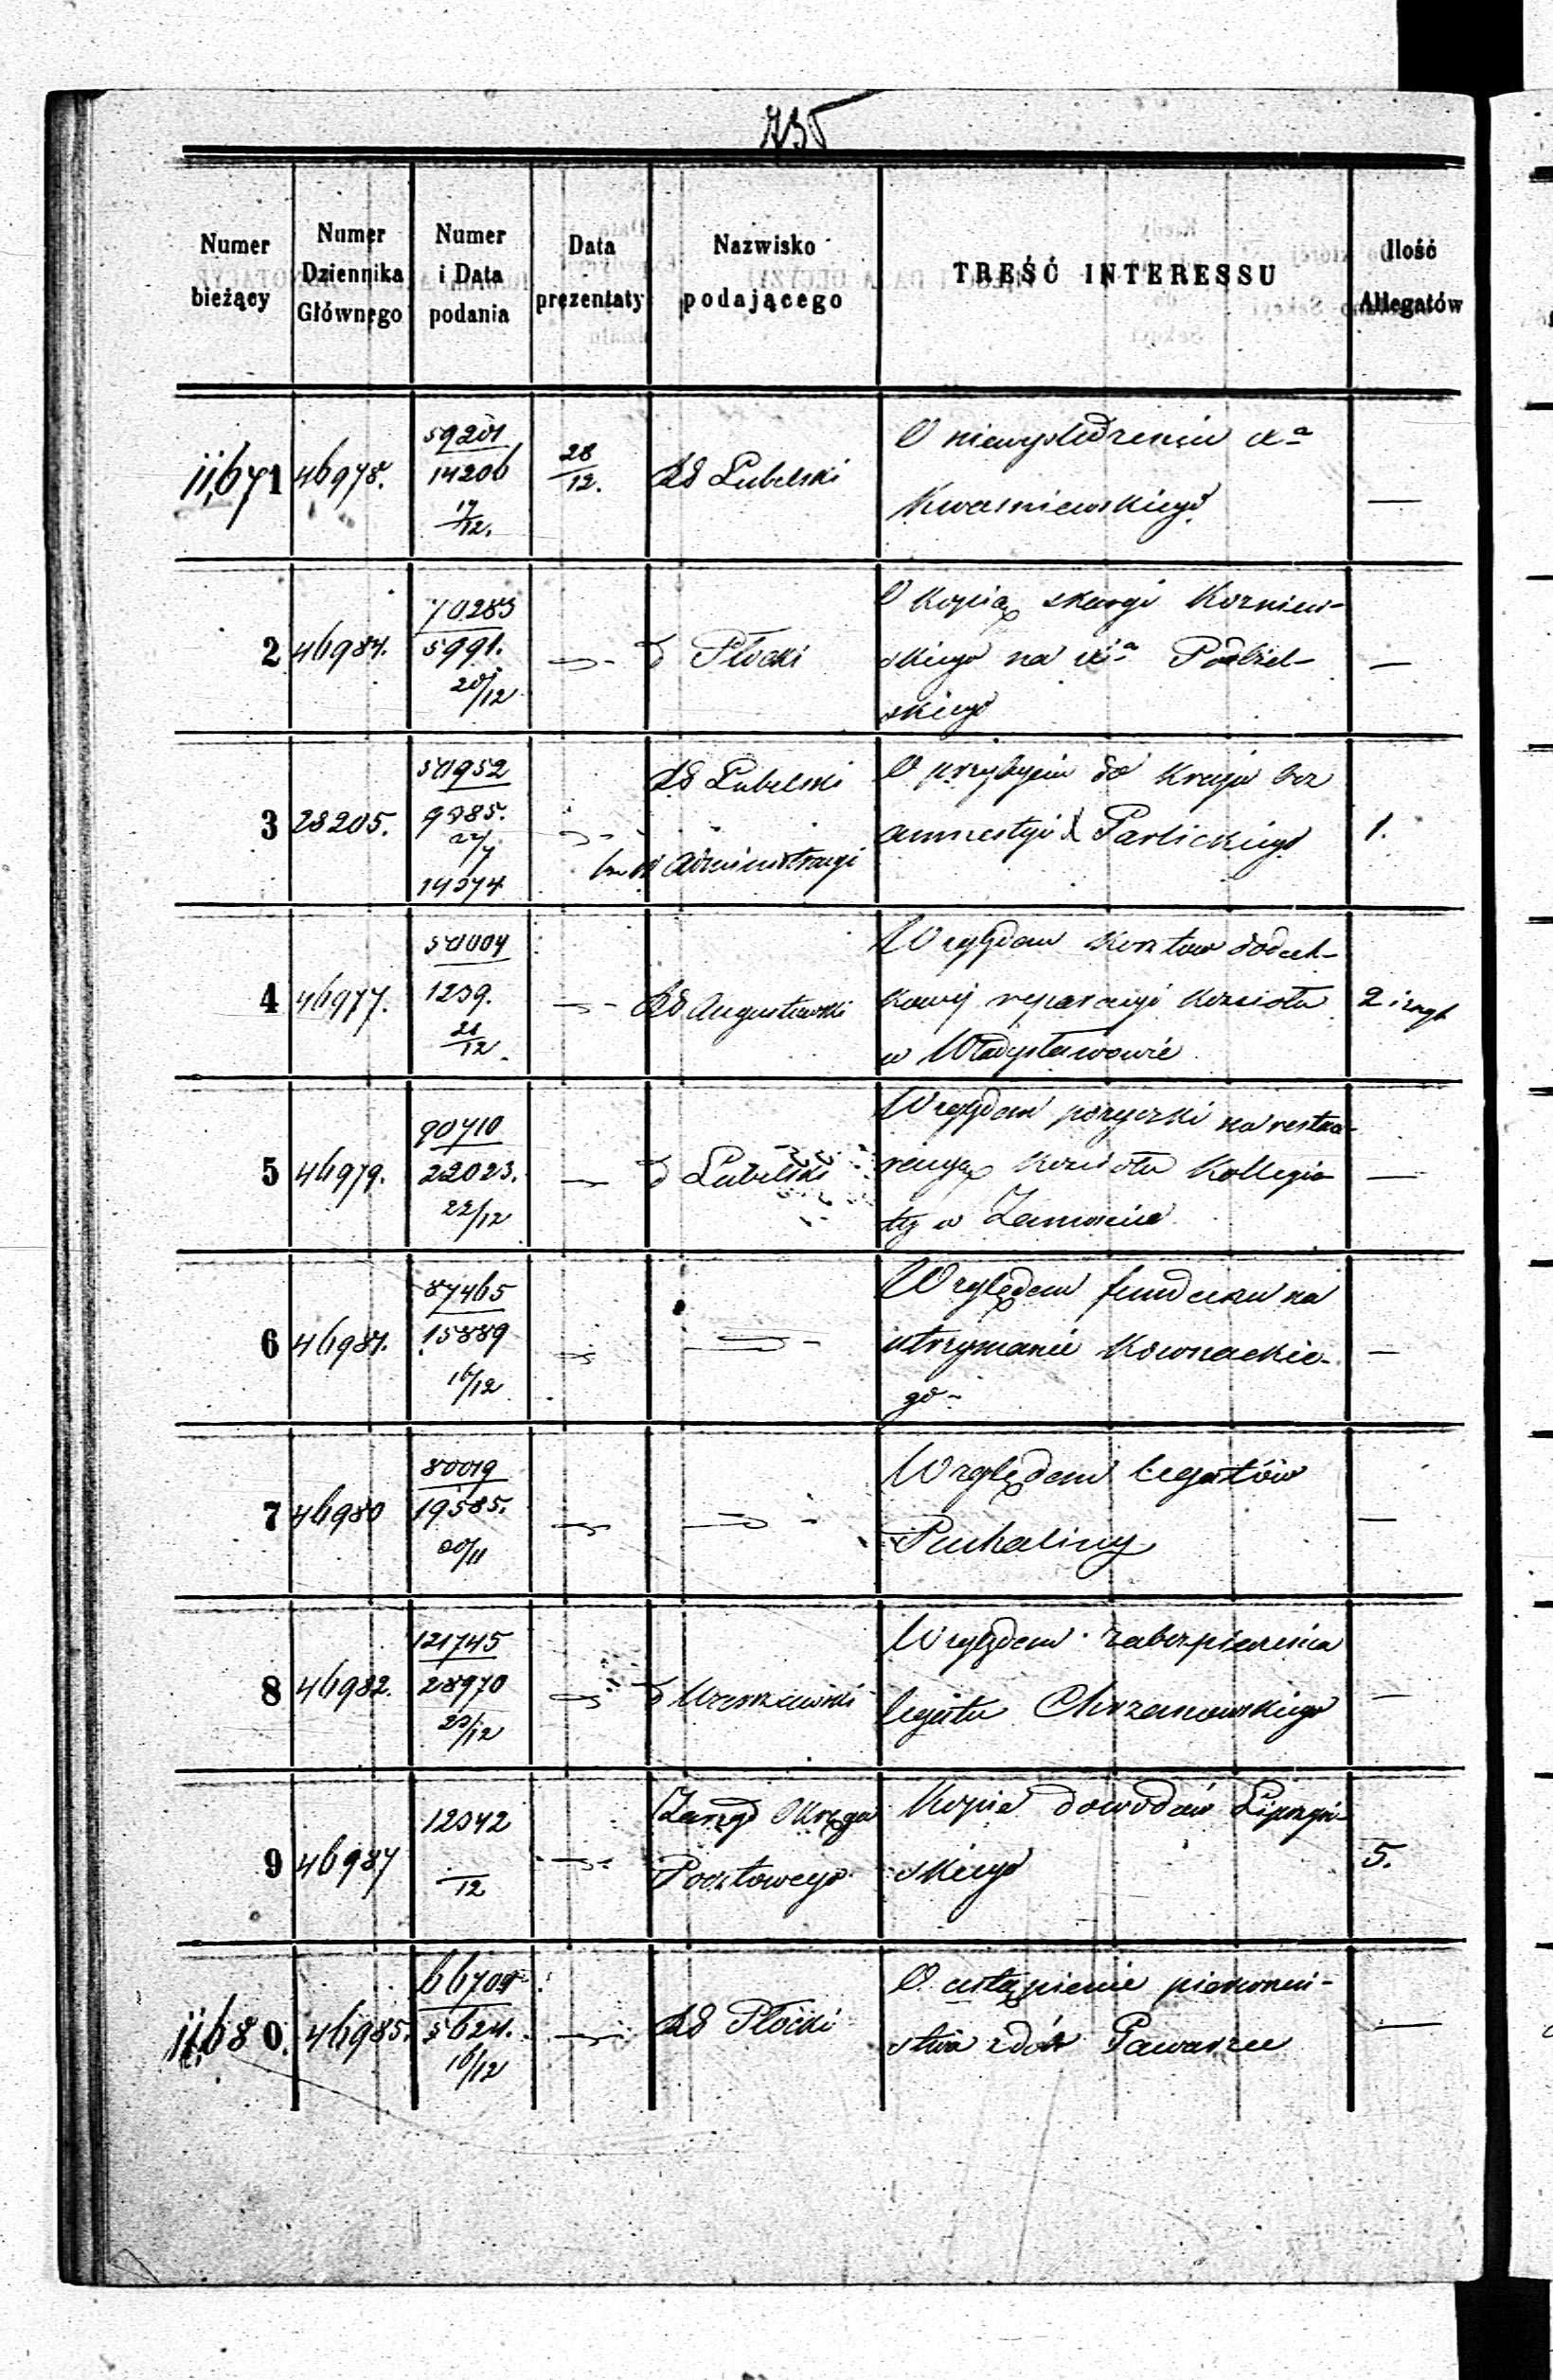 735
Numer bieżący
Numer Dziennika Głównego
Numer i Data podania
Data prezentaty
Nazwisko podającego
TREŚĆ INTERESSU
Ilość Allegatów
11,671 46978. 59201 14206 17/12. 28/12. Rd Lubelski O niewyśledzeniu Xa —
Kwasniewskiego
2 46984. 70283 5991. 20/12 d Płocki O kopią skargi Kozniew-
skiego na Xa Podbiel- —
skiego
3 28205. 9385. 14374 Rd Lubelski O przybyciu do Kraju bez
Administracyi amnestyi X Parlickiego 1.
4 46977. 1239. 21/12. Rd Augustowski Względem kosztów dodat-
kowej reparacyi Kościoła 2 i
w Władysławowie
5 46979. 90710 22023. 22/12 d Lubelski Względem pożyczki na restau-
racyę Kościoła Kollegia- —
ty w Zamościu
6 46984. 87465 15889 16/12 Względem funduszu na
utrzymanie Kownackie- —
go
7 46980 80019 19585. 20/11 Względem legatów
Puchaliny —
8 46982. 121745 28970 23/12 d Warszawski Względem zabezpieczenia
legatu Chrzanowskiego —
9 46987 12342 /12 Zarząd Okręgu Kopie dowodów Lipczyń-
Pocztowego skiego 5.
11,680. 46985. 5624. 16/12 Rd Płocki O ustąpienie pierwszeń-
stwa zdóbr Pawarzee —